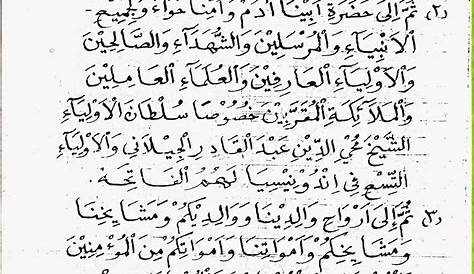 (٢) ثُمَّ إِلَى حَضْرَةِ أَبِيْنَا أَدَمَ وَأُمِّنَا حَوَّاءَ وَلِجَمِيْعِ-
الْاَنْبِيَآءِ وَالْمُرْسَلِيْنَ وَالشُّهَدَآءِ وَالصَّالِحِيْنَ
وَالْاَوْلِيَآءِ الْعَارِفِيْنَ وَالْعُلَمَآءِ الْعَامِلِيْنَ
وَالْمَلَآئِكَةِ الْمُقَرَّبِيْنَ خُصُوْصًا سُلْطَانَ الْاَوْلِيَآءِ
الشَّيْخَ مُحْيِ الدِّيْنِ عَبْدَ الْقَادِرِ الْجِيْلَانِي وَالْاَوْلِيَآءِ
التِّسْعِ فِي اِنْدُوْنِيْسِيَا لَهُمُ الْفَاتِحَة.
(٣) ثُمَّ إِلَى أَرْوَاحِ وَالِدِيْنَا وَوَالِدِيْكُمْ وَمَشَايِخِنَا
وَمَشَايِخِكُمْ وَاَمْوَاتِنَا وَاَمْوَاتِكُمْ مِنَ الْمُؤْمِنِيْنَ